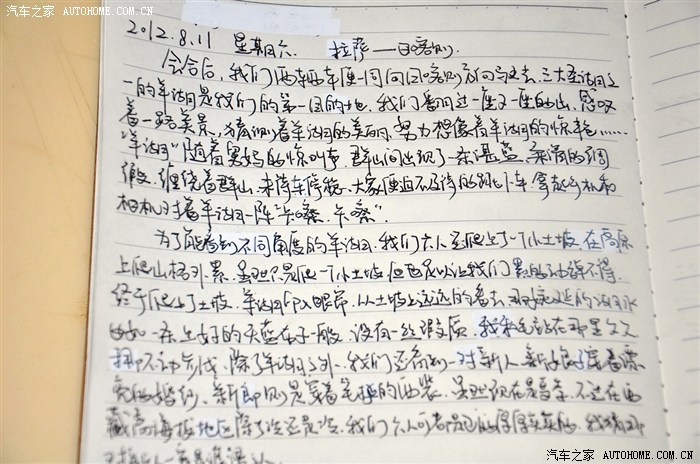 汽车之家 AUTOHOME.COM.CN
汽车之家 AUTOHOME.COM.CN
2012.8.11 星期六 拉萨——日喀则
会合后,我们两辆车便一同向日喀则方向驶去,三大圣湖之
一的羊湖是我们的第一目的地,我们看过一座又一座的山,感叹
着一路美景,猜测着羊湖的美丽,努力想像着羊湖的惊艳……
“羊湖”随着 妈的惊叫声,群山间出现了一条湛蓝、柔滑的绸
缎,缠绕着群山,未待车停稳,大家便迫不及待的跳下车,拿起手机和
相机对着羊湖一阵“卡嚓、卡嚓”.
为了能看到不同角度的羊湖,我们六人还爬上了一个小土坡,在高原
上爬山格外累,虽然只是爬一个小土坡,但也足以让我们累的动弹不得,
终于爬上了土坡,羊湖印入眼帘,从土坡上远远的看去,那 的湖水
如一条上好的天蓝 子一般,没有一丝瑕疵,我 站在那里久久
移不动步伐,除了羊湖之外,我们还看到一对新人,新娘子穿着漂
亮的婚纱,新郎则是穿着笔挺的西装,虽然现在是夏季,不过在西
藏高海拔地区除了冷还是冷,我们六人可都是 的厚厚实实的,我猜那